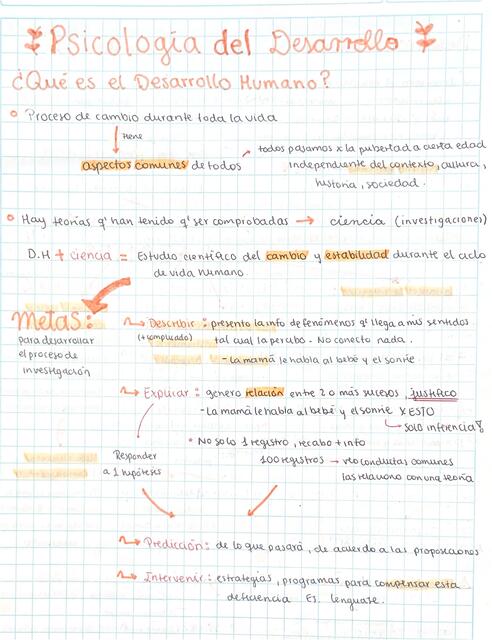 Psicología del Desarrollo
¿Qué es el Desarrollo Humano?
Proceso de cambio durante toda la vida
tiene
aspectos comunes de todos
todos pasamos x la pubertad a cierta edad
independiente del contexto, cultura,
historia, sociedad.
Hay teorías q' han tenido q' ser comprobadas → ciencia (investigaciones)
D.H + ciencia = Estudio científico del cambio y estabilidad durante el ciclo
de vida humano
Metas:
para desarrollar
el proceso de
investigación
Describir : presento la info de fenómenos q' llega a mis sentidos
(+ complicado) tal cual la percibo. No conecto nada.
- La mamá le habla al bebé y el sonríe
Explicar : genero relación entre 2 o más sucesos, justifico
- La mamá le habla al bebé y el sonríe X ESTO
↳ solo inferencia!
• No solo 1 registro, recabo + info
Responder
a 1 hipótesis
100 registros → veo conductas comunes
las relaciono con una teoría
Predicción : de lo que pasará, de acuerdo a las proposiciones
Intervenir : estrategias, programas para compensar esta
deficiencia Ej. lenguaje.